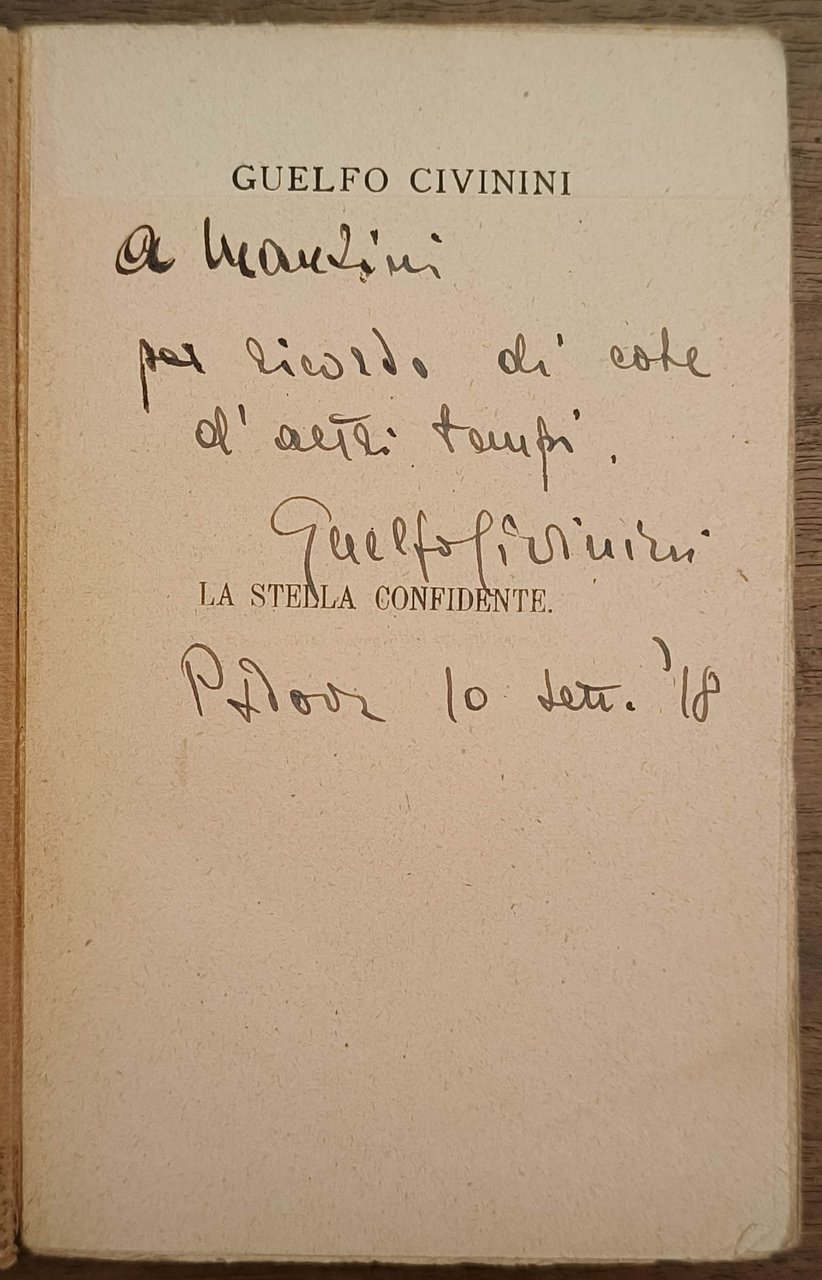 GUELFO CIVININI
A Manzini
per ricordo di cose
d'altri tempi.
Guelfo Civinini
LA STELLA CONFIDENTE.
Padova 10 sett. '18